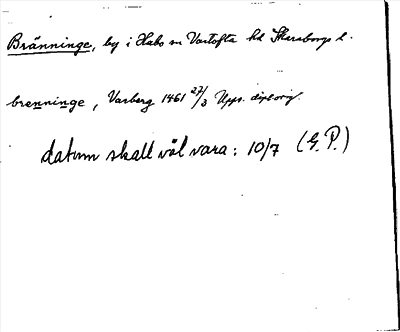 Bränninge, by i Habo sn Vartofta hd Skaraborgs l.
brenninge, Varberg 1461 27/3 Upps. dipl. orig.
datum skall väl vara: 10/7 (G.P.)